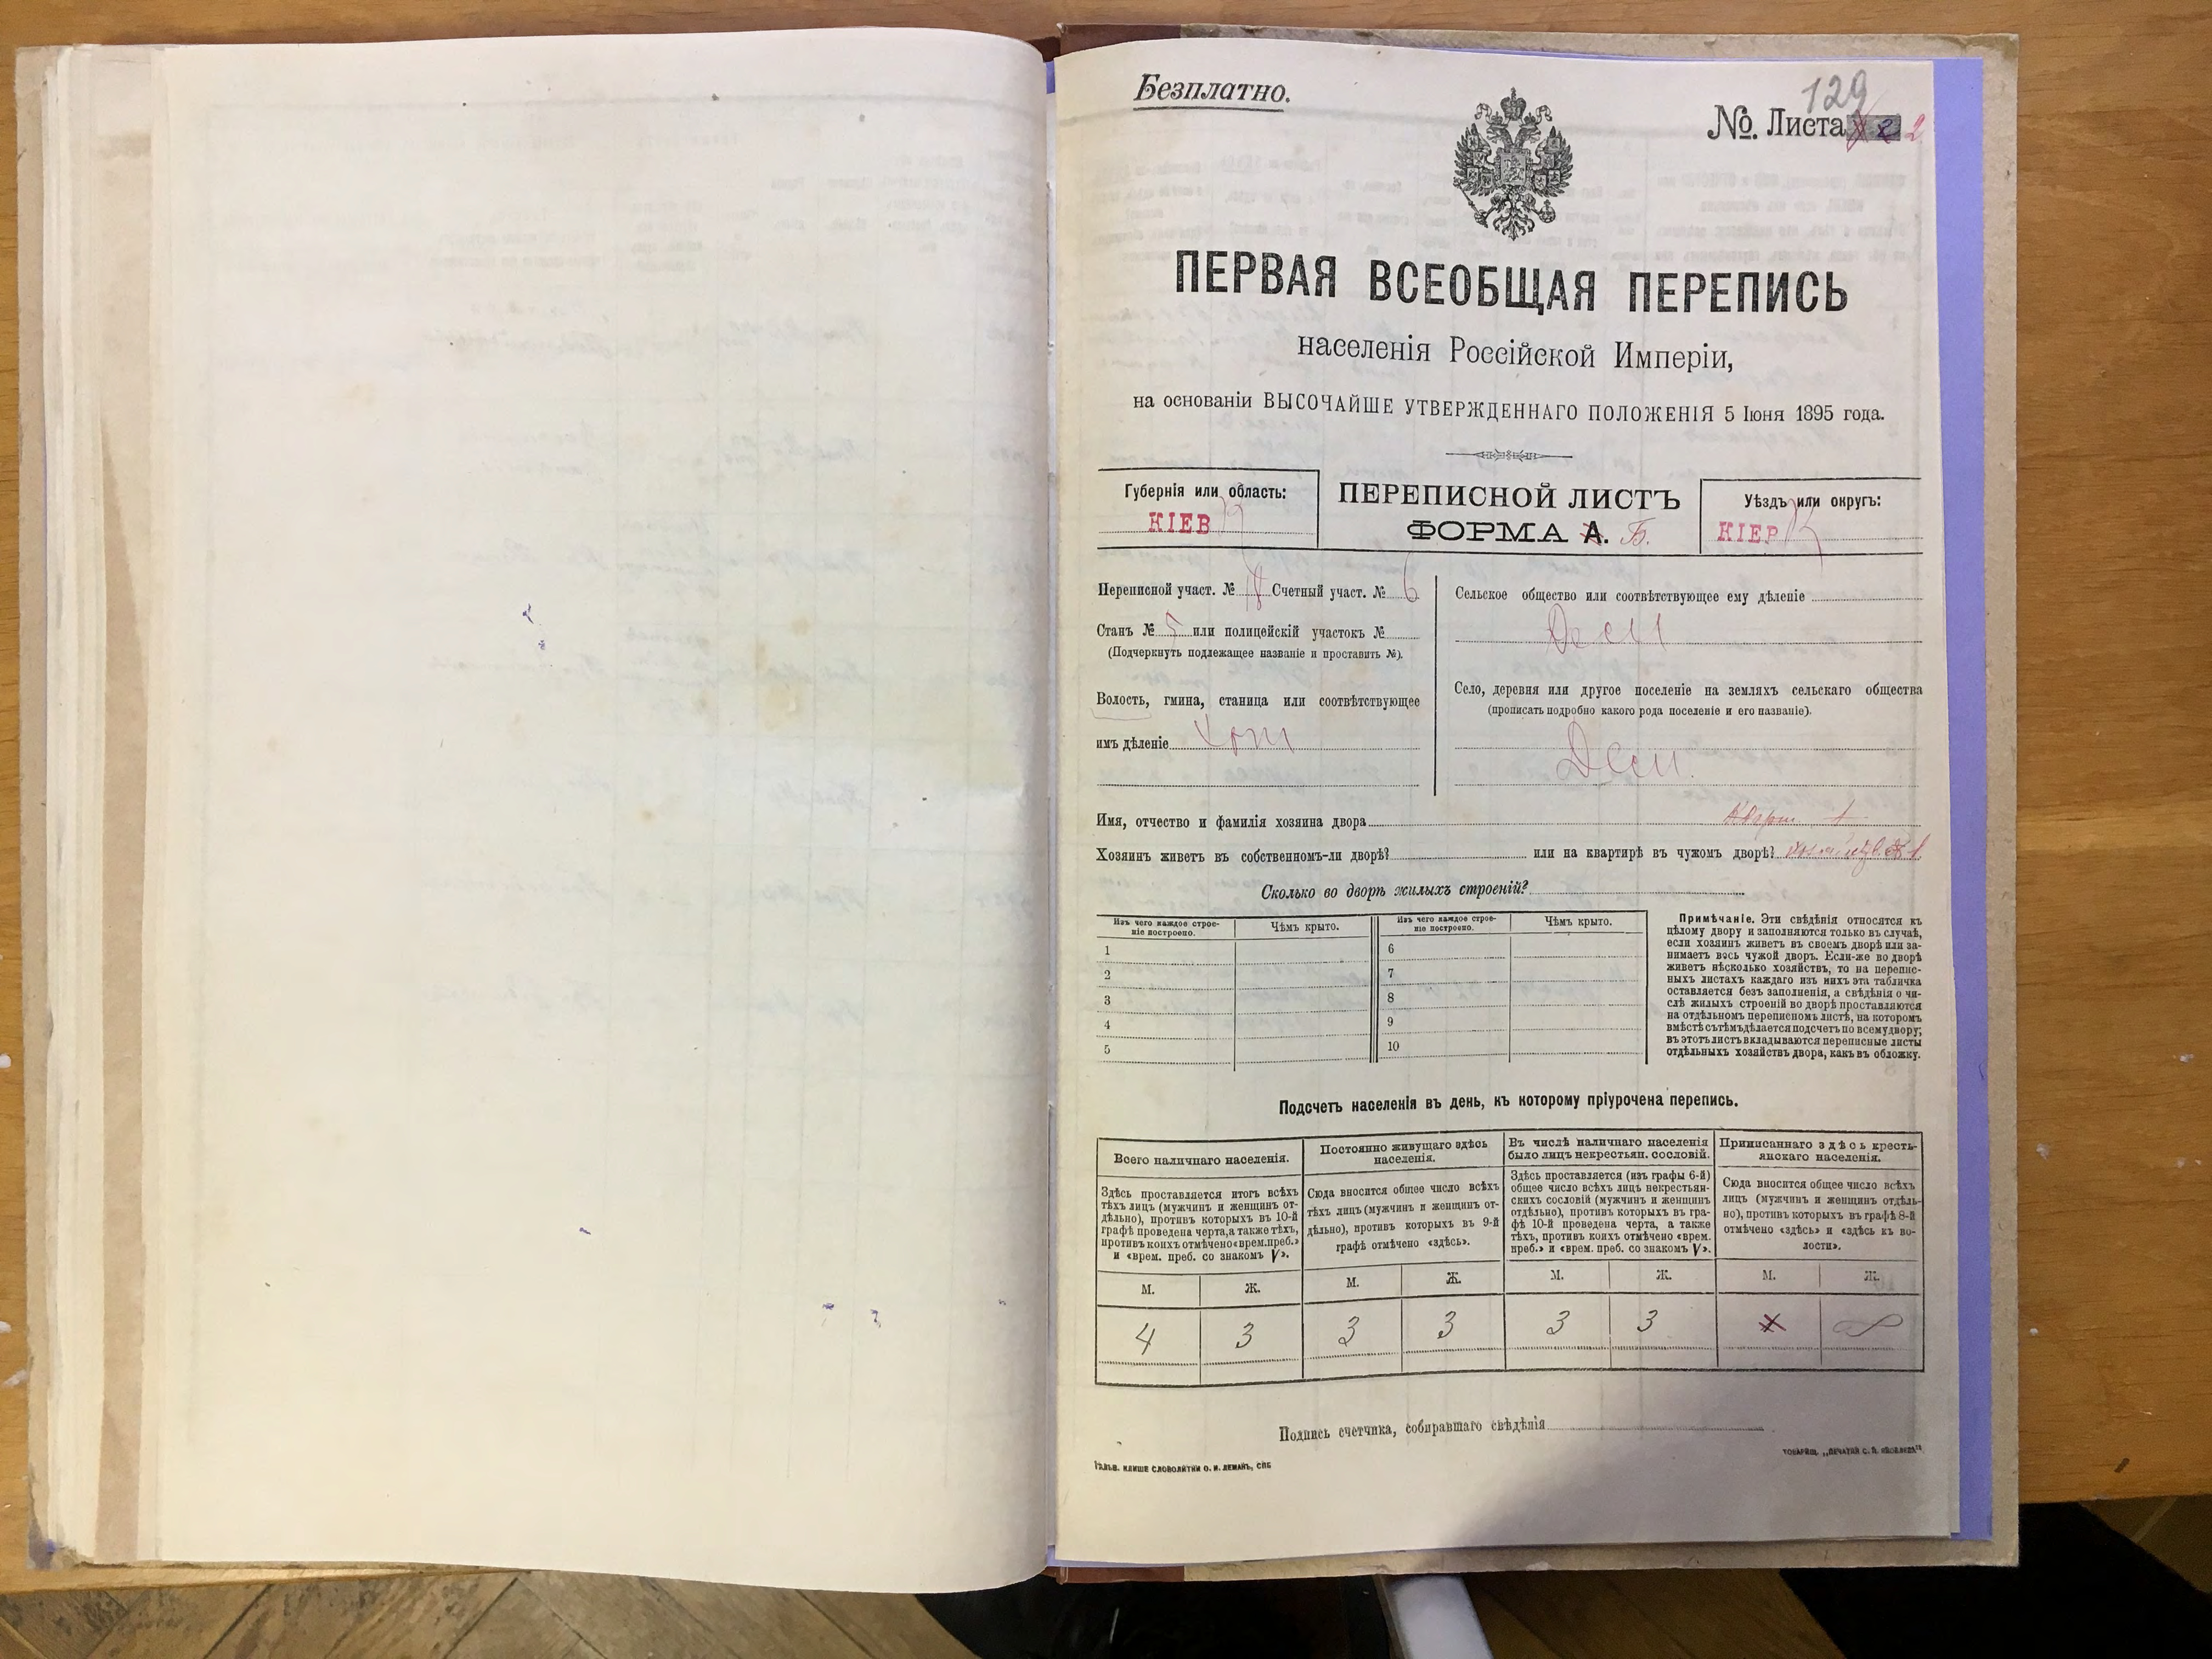 Безплатно.
129
№. Листа 2
ПЕРВАЯ ВСЕОБЩАЯ ПЕРЕПИСЬ
населенія Россійской Имперіи,
на основаніи ВЫСОЧАЙШЕ УТВЕРЖДЕННАГО ПОЛОЖЕНІЯ 5 Іюня 1895 года.
Губернія или область:
КІЕВ
ПЕРЕПИСНОЙ ЛИСТЪ
ФОРМА А. Б.
Уѣздъ или округъ:
КІЕВ
Переписной участ. № 18 Счетный участ. № 6
Станъ № 5 или полицейскій участокъ №
(Подчеркнуть подлежащее названіе и проставить №).
Волость, гмина, станица или соотвѣтствующее
имъ дѣленіе
Сельское общество или соотвѣтствующее ему дѣленіе
Село, деревня или другое поселеніе на земляхъ сельскаго общества
(прописать подробно какого рода поселеніе и его названіе).
Имя, отчество и фамилія хозяина двора
Хозяинъ живетъ въ собственномъ-ли дворѣ? или на квартирѣ въ чужомъ дворѣ?
Сколько во дворѣ жилыхъ строеній?
Изъ чего каждое строе-
ніе построено.
Чѣмъ крыто.
Изъ чего каждое строе-
ніе построено.
Чѣмъ крыто.
1
2
3
4
5
6
7
8
9
10
Примѣчаніе. Эти свѣдѣнія относятся къ
цѣлому двору и заполняются только въ случаѣ,
если хозяинъ живетъ въ своемъ дворѣ или за-
нимаетъ весь чужой дворъ. Если-же во дворѣ
живетъ нѣсколько хозяйствъ, то на перепис-
ныхъ листахъ каждаго изъ нихъ эта табличка
оставляется безъ заполненія, а свѣдѣнія о чи-
слѣ жилыхъ строеній во дворѣ проставляются
на отдѣльномъ переписномъ листѣ, на которомъ
вмѣстѣ съ тѣмъ дѣлается подсчетъ по всему двору;
въ этотъ листъ вкладываются переписные листы
отдѣльныхъ хозяйствъ двора, какъ въ обложку.
Подсчетъ населенія въ день, къ которому пріурочена перепись.
Всего наличнаго населенія.
Здѣсь проставляется итогъ всѣхъ
тѣхъ лицъ (мужчинъ и женщинъ от-
дѣльно), противъ которыхъ въ 10-й
графѣ проведена черта, а также тѣхъ,
противъ коихъ отмѣчено «врем. преб.»
и «врем. преб. со знакомъ V».
Постоянно живущаго здѣсь
населенія.
Сюда вносится общее число всѣхъ
тѣхъ лицъ (мужчинъ и женщинъ от-
дѣльно), противъ которыхъ въ 9-й
графѣ отмѣчено «здѣсь».
Въ числѣ наличнаго населенія
было лицъ некрестьян. сословій.
Здѣсь проставляется (изъ графы 6-й)
общее число всѣхъ лицъ некрестьян-
скихъ сословій (мужчинъ и женщинъ
отдѣльно), противъ которыхъ въ гра-
фѣ 10-й проведена черта, а также
тѣхъ, противъ коихъ отмѣчено «врем.
преб.» и «врем. преб. со знакомъ V».
Приписаннаго здѣсь кресть-
янскаго населенія.
Сюда вносится общее число всѣхъ
лицъ (мужчинъ и женщинъ отдѣль-
но), противъ которыхъ въ графѣ 8-й
отмѣчено «здѣсь» и «здѣсь къ во-
лости».
М. Ж. М. Ж. М. Ж. М. Ж.
4 3 3 3 3 3
Подпись счетчика, собиравшаго свѣдѣнія
ГАЛЬВ. КЛИШЕ СЛОВОЛИТНИ О. И. ЛЕМАНЪ, СПБ
ТОВАРИЩ. „ПЕЧАТНЯ С. П. ЯКОВЛЕВА“